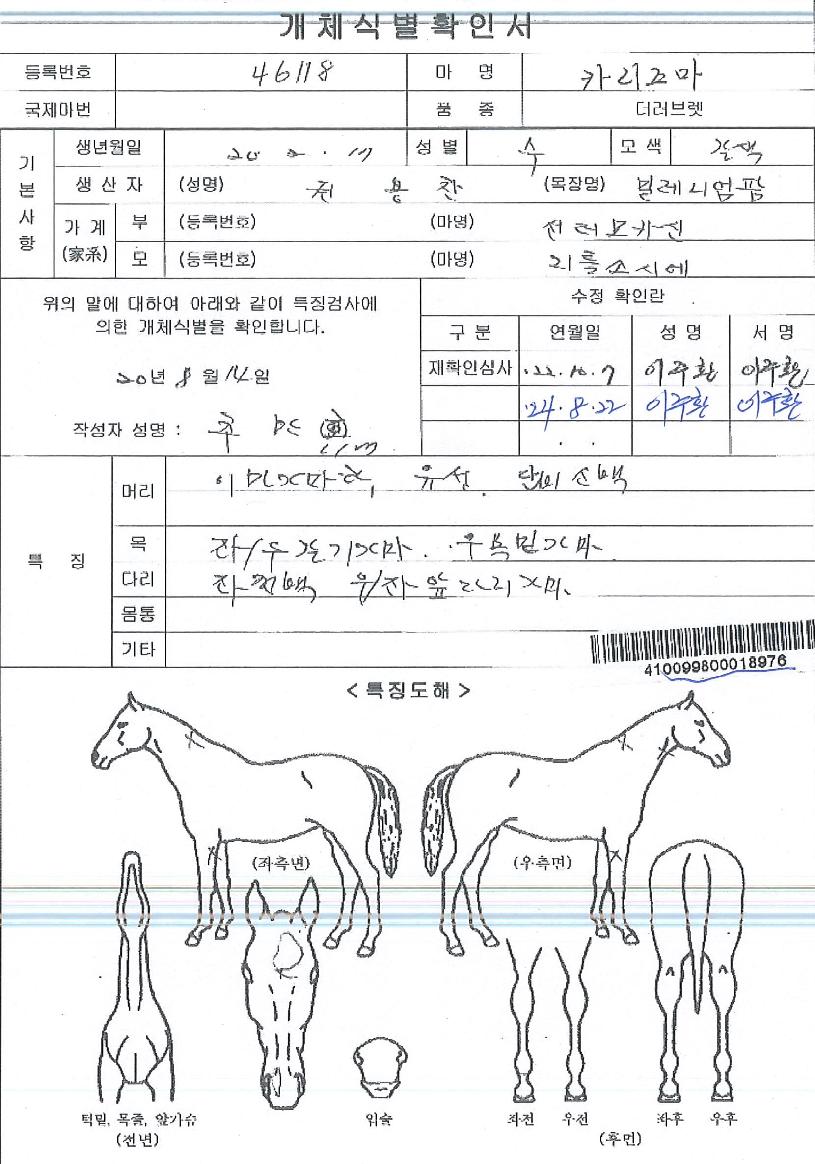 개체식별확인서
등록번호 46118 마 명 카리즈마
국제마번 품 종 더러브렛
기본사항
생년월일 20 2 . 17 성 별 수 모 색 갈색
생 산 자 (성명) 전 용 찬 (목장명) 밀레니엄팜
가 계 (家系) 부 (등록번호) (마명)
모 (등록번호) (마명) 리틀소시에
위의 말에 대하여 아래와 같이 특징검사에
의한 개체식별을 확인합니다.
20년 8월 14일
작성자 성명 :
수정 확인란
구 분 연월일 성 명 서 명
재확인심사 '22.10.7 이주환 이주환
'24.8.22 이주환 이주환
. .
특 징
머리 유성. 단비선백
목 좌/우
다리
몸통
기타
410099800018976
< 특징도해 >
(좌측면) (우측면)
턱밑, 목줄, 앞가슴
(전면)
입술
좌전 우전 좌후 우후
(후면)